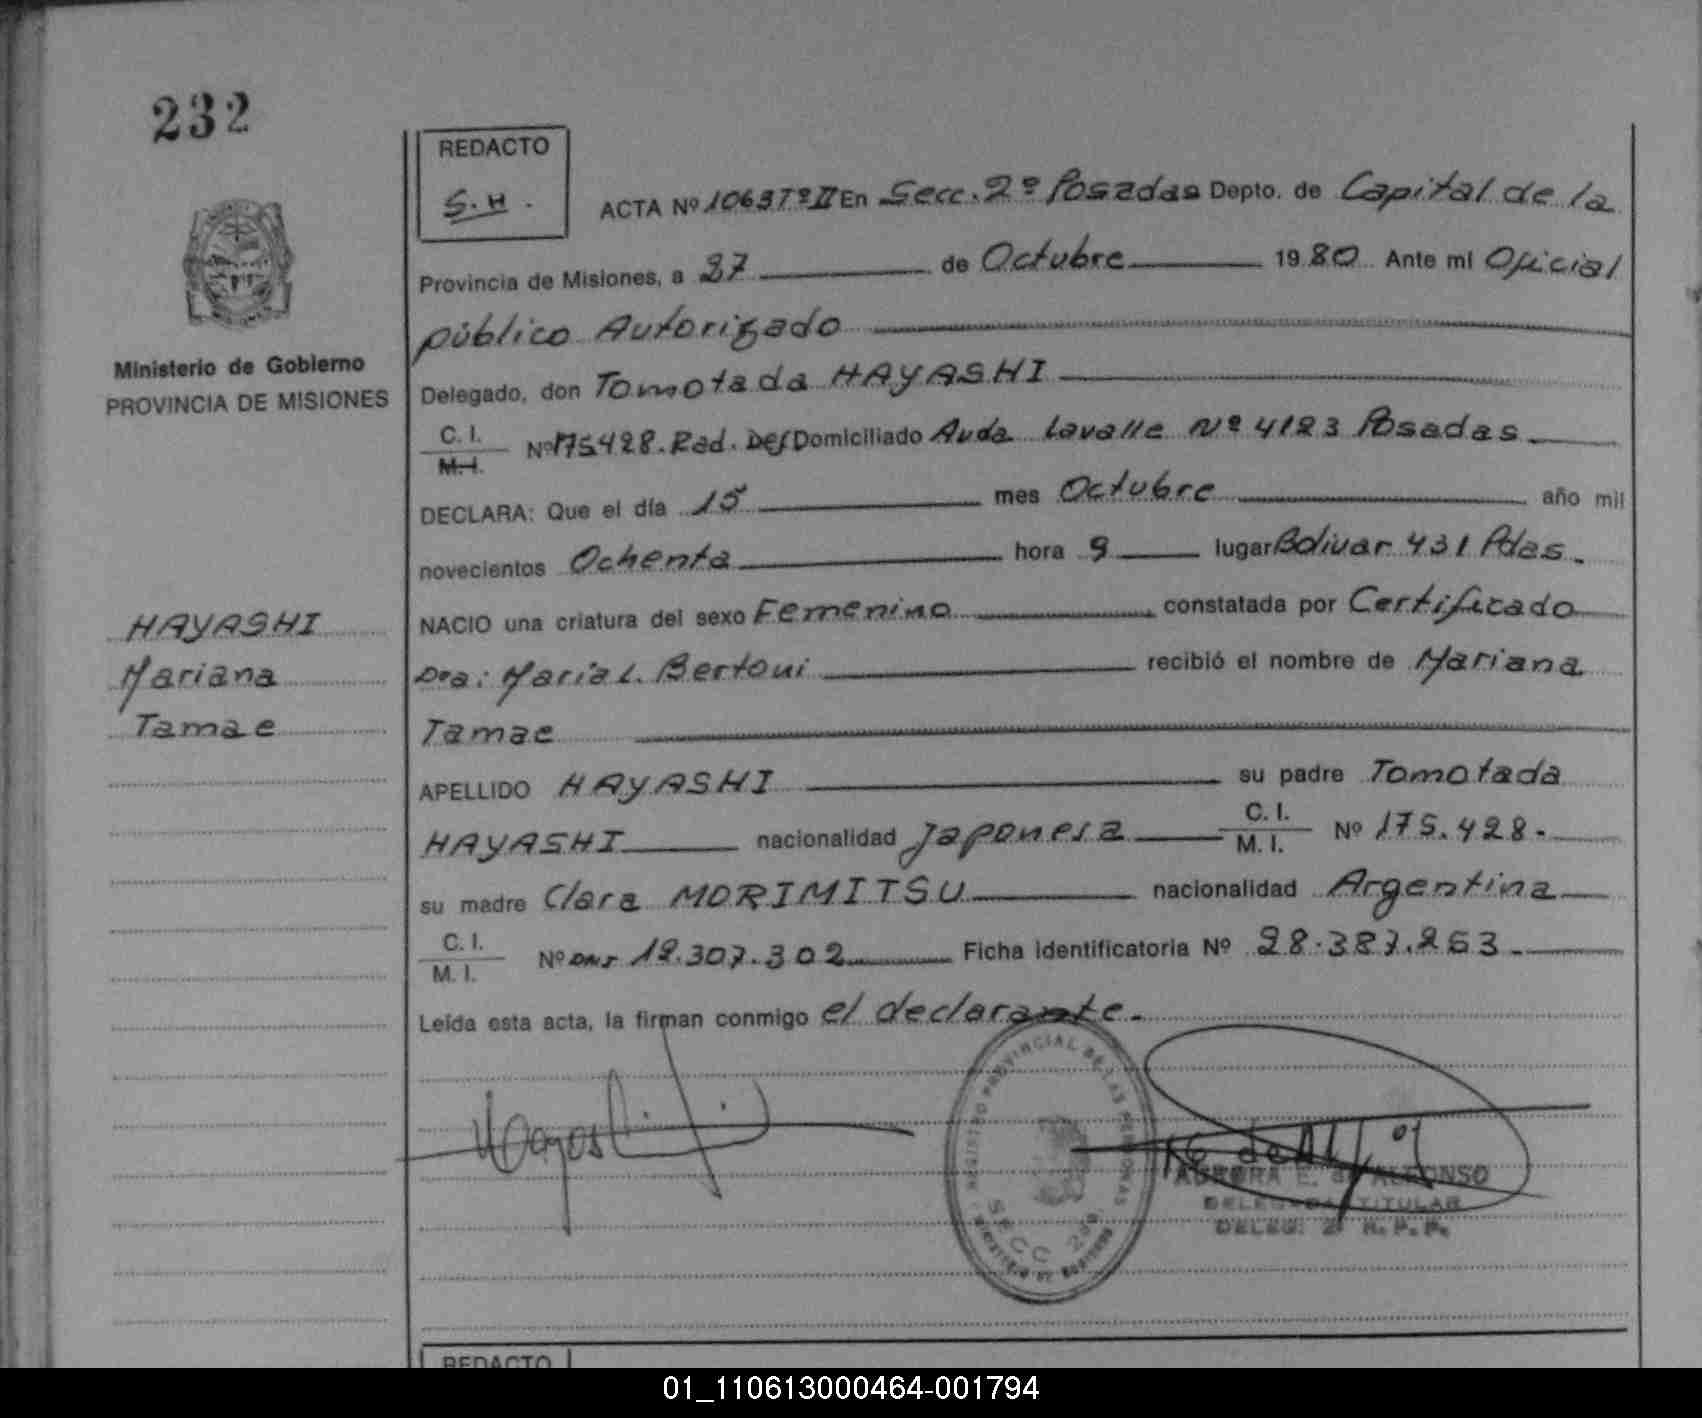 232
REDACTO
S.H.
ACTA Nº 1063 Tº II En Secc. 2º Posadas Depto. de Capital de la
Provincia de Misiones, a 27 de Octubre 1980 Ante mi Oficial
público Autorizado
Ministerio de Gobierno
PROVINCIA DE MISIONES
Delegado, don Tomotada HAYASHI
C. I.
M. I.
Nº 175.428. Rad. Def Domiciliado Avda Lavalle Nº 4123 Posadas
DECLARA: Que el día 15 mes Octubre año mil
novecientos Ochenta hora 9 lugar Bolivar 431 Pdas.
HAYASHI
Mariana
Tamae
NACIO una criatura del sexo Femenino constatada por Certificado
Dra: Maria L. Bertoni recibió el nombre de Mariana
Tamae
APELLIDO HAYASHI su padre Tomotada
HAYASHI nacionalidad Japonesa C. I. M. I. Nº 175.428.
su madre Clara MORIMITSU nacionalidad Argentina
C. I.
M. I.
Nº DNI 12.307.302 Ficha identificatoria Nº 28.387.253.
Leída esta acta, la firman conmigo el declarante.
REGISTRO PROVINCIAL DE LAS PERSONAS
SECC 2da
AURORA E. de ALFONSO
DELEGADA TITULAR
DELEG. 2ª R. P. P.
REDACTO
01_110613000464-001794